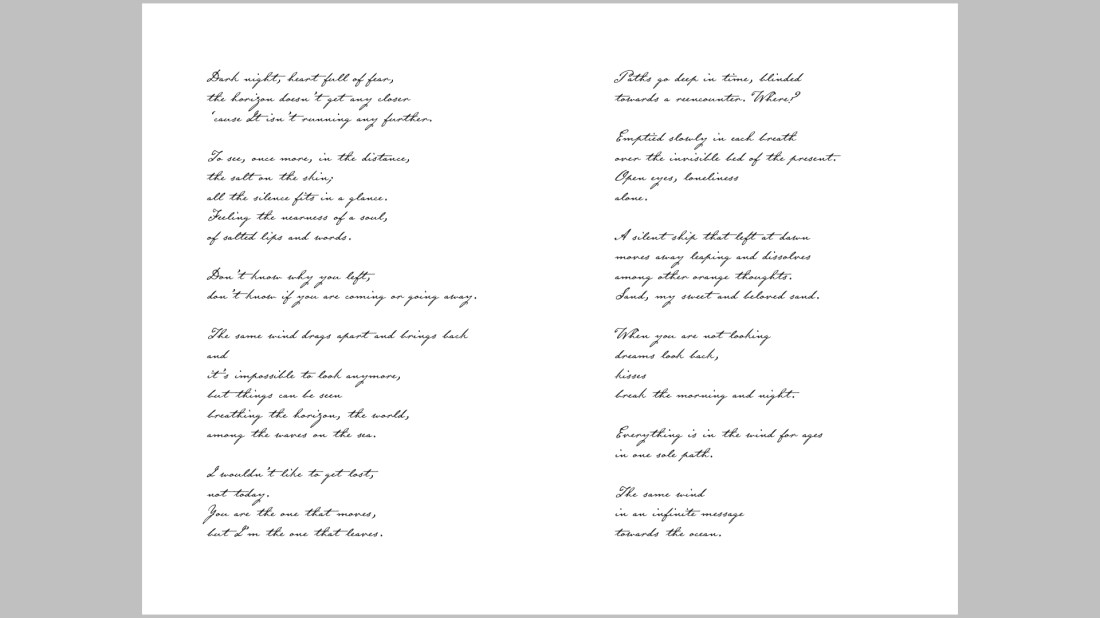 Dark night, heart full of fear,
the horizon doesn't get any closer
'cause It isn't running any further.
To see, once more, in the distance,
the salt on the skin;
all the silence fits in a glance.
Feeling the nearness of a soul,
of salted lips and words.
Don't know why you left,
don't know if you are coming or going away.
The same wind drags apart and brings back
and
it's impossible to look anymore,
but things can be seen
breathing the horizon, the world,
among the waves on the sea.
I wouldn't like to get lost,
not today.
You are the one that moves,
but I'm the one that leaves.
Paths go deep in time, blinded
towards a reencounter. Where?
Emptied slowly in each breath
over the invisible bed of the present.
Open eyes, loneliness
alone.
A silent ship that left at dawn
moves away leaping and dissolves
among other orange thoughts.
Sand, my sweet and beloved sand.
When you are not looking
dreams look back,
kisses
break the morning and night.
Everything is in the wind for ages
in one sole path.
The same wind
in an infinite message
towards the ocean.